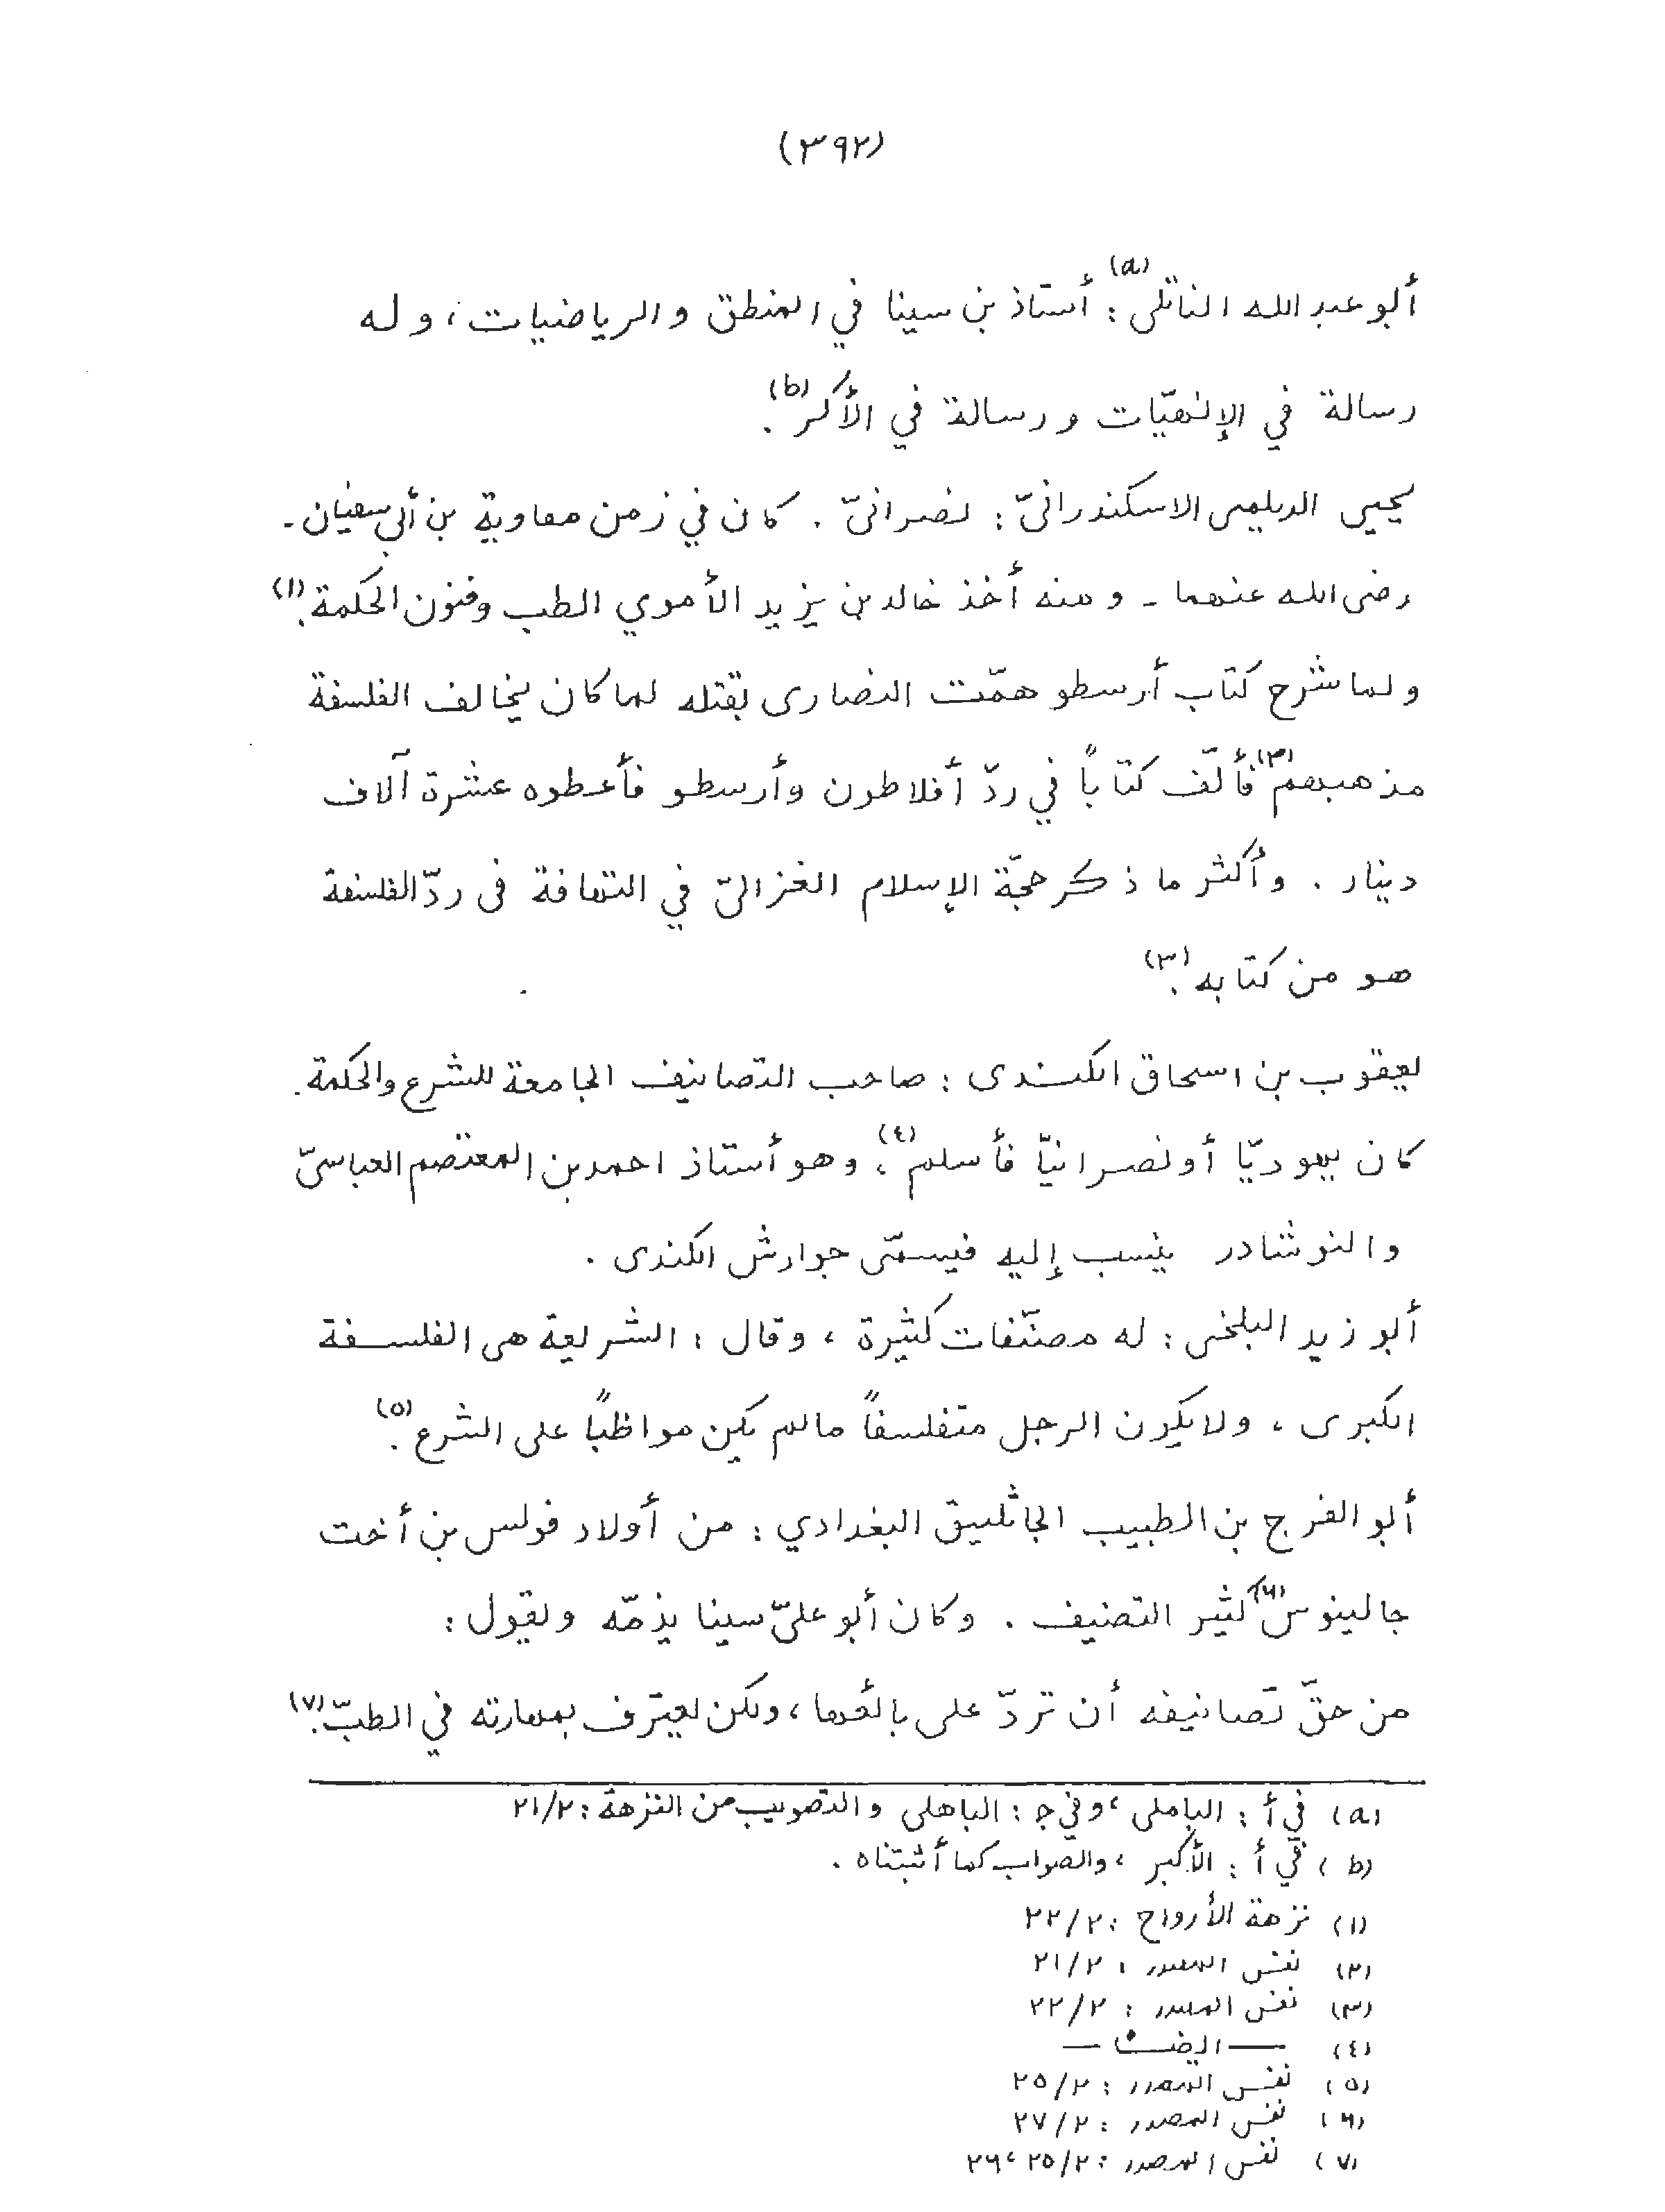 (٣٩٢)
أبو عبد الله الناتلي(a): أستاذ بن سينا في المنطق والرياضيات، وله
رسالة في الإلٰهيّات ورسالة في الأكر(b).
يحيى الديلمي الاسكندرانيّ: نصرانيّ. كان في زمن معاوية بن أبي سفيان -
رضى الله عنهما - ومنه أخذ خالد بن يزيد الأموي الطب وفنون الحكمة.(١)
ولما شرح كتاب أرسطو همّت النصارى بقتله لما كان يخالف الفلسفة
مذهبهم(٢) فألّف كتاباً في ردّ أفلاطون وأرسطو فأعطوه عشرة آلاف
دينار. وأكثر ما ذكر حجّة الإسلام الغزاليّ في التهافة فى ردّ الفلسفة
هو من كتابه.(٣)
يعقوب بن اسحاق الكندى: صاحب التصانيف الجامعة للشرع والحكمة.
كان يهوديّا أو نصرانيّا فأسلم(٤)، وهو أستاذ احمد بن المعتصم العباسيّ
والنوشادر ينسب إليه فيسمّى جوارش الكندى.
أبو زيد البلخى: له مصنّفات كثيرة، وقال: الشريعة هى الفلسفة
الكبرى، ولا يكون الرجل متفلسفاً مالم يكن مواظباً على الشرع.(٥)
أبو الفرج بن الطبيب الجاثليق البغدادي: من أولاد فولس بن أخت
جالينوس(٦) كثير التصنيف. وكان أبو عليّ سينا يذمّه ويقول:
من حقّ تصانيفه أن تردّ على بائعها، ولكن يعترف بمهارته في الطبّ.(٧)
(a) في أ: الباملى، وفي ج: الباهلى والتصويب من النزهة: ٢١/٢
(b) في أ: الأكبر، والصواب كما أثبتناه.
(١) نزهة الأرواح: ٢٢/٢
(٢) نفس المصدر: ٢١/٢
(٣) نفس المصدر: ٢٢/٢
(٤) — ايضاً —
(٥) نفس المصدر: ٢٥/٢
(٦) نفس المصدر: ٢٧/٢
(٧) نفس المصدر: ٢٥/٢، ٢٦